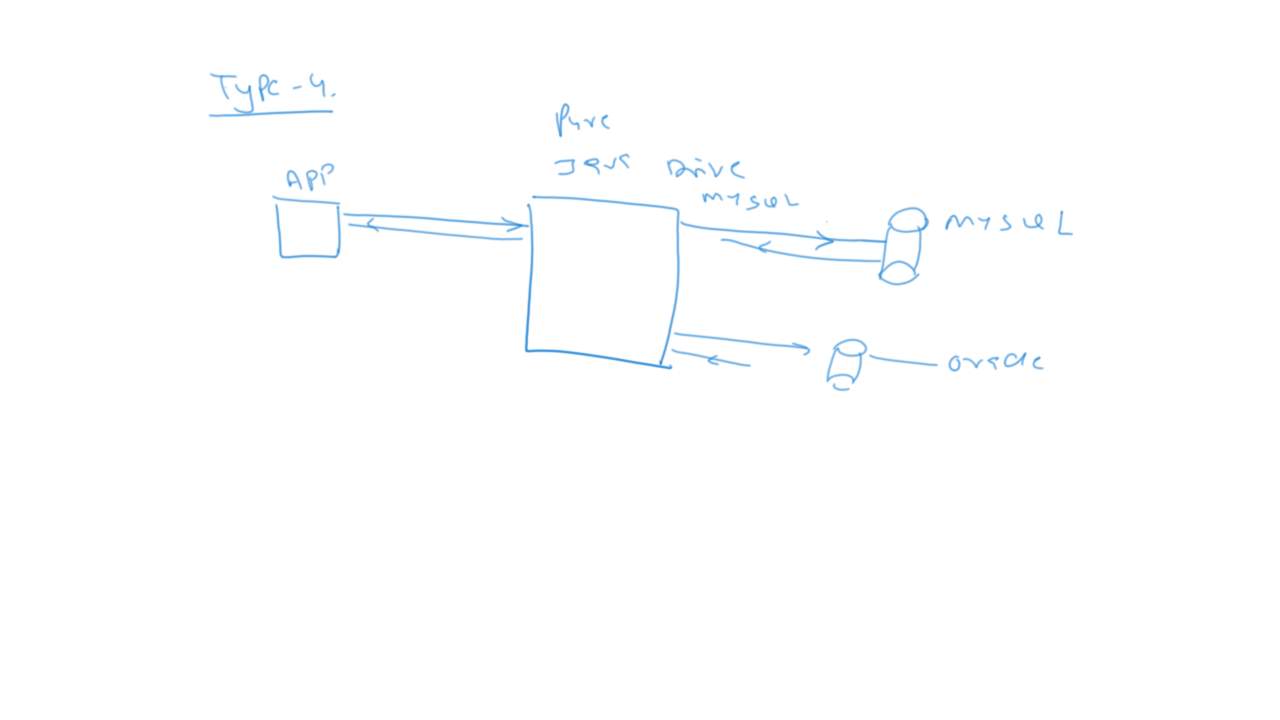 Type-4.
Pure
Java Drive
APP
MYSQL
MYSQL
oracle